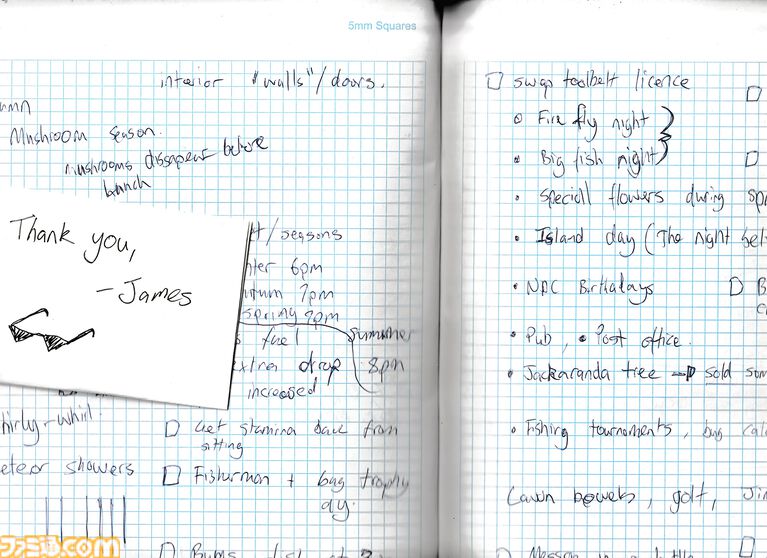 5mm Squares
interior "walls"/doors.
Mushroom season.
mushrooms dissapear before
lunch
Thank you,
- James
/seasons
6pm
7pm
spring 7pm
summer
fuel
8pm
drop
increased
Get stamina back from
sitting
Fisherman + bug trophy
day.
showers
swap toolbelt licence
Fire fly night
Big fish night
Speciall flowers during
Island day (The night
NPC Birthadays
Pub, • Post office.
Jackaranda tree → sold
Fishing tournoments, bug
Lawn bowels, golf,
ファミ通.com